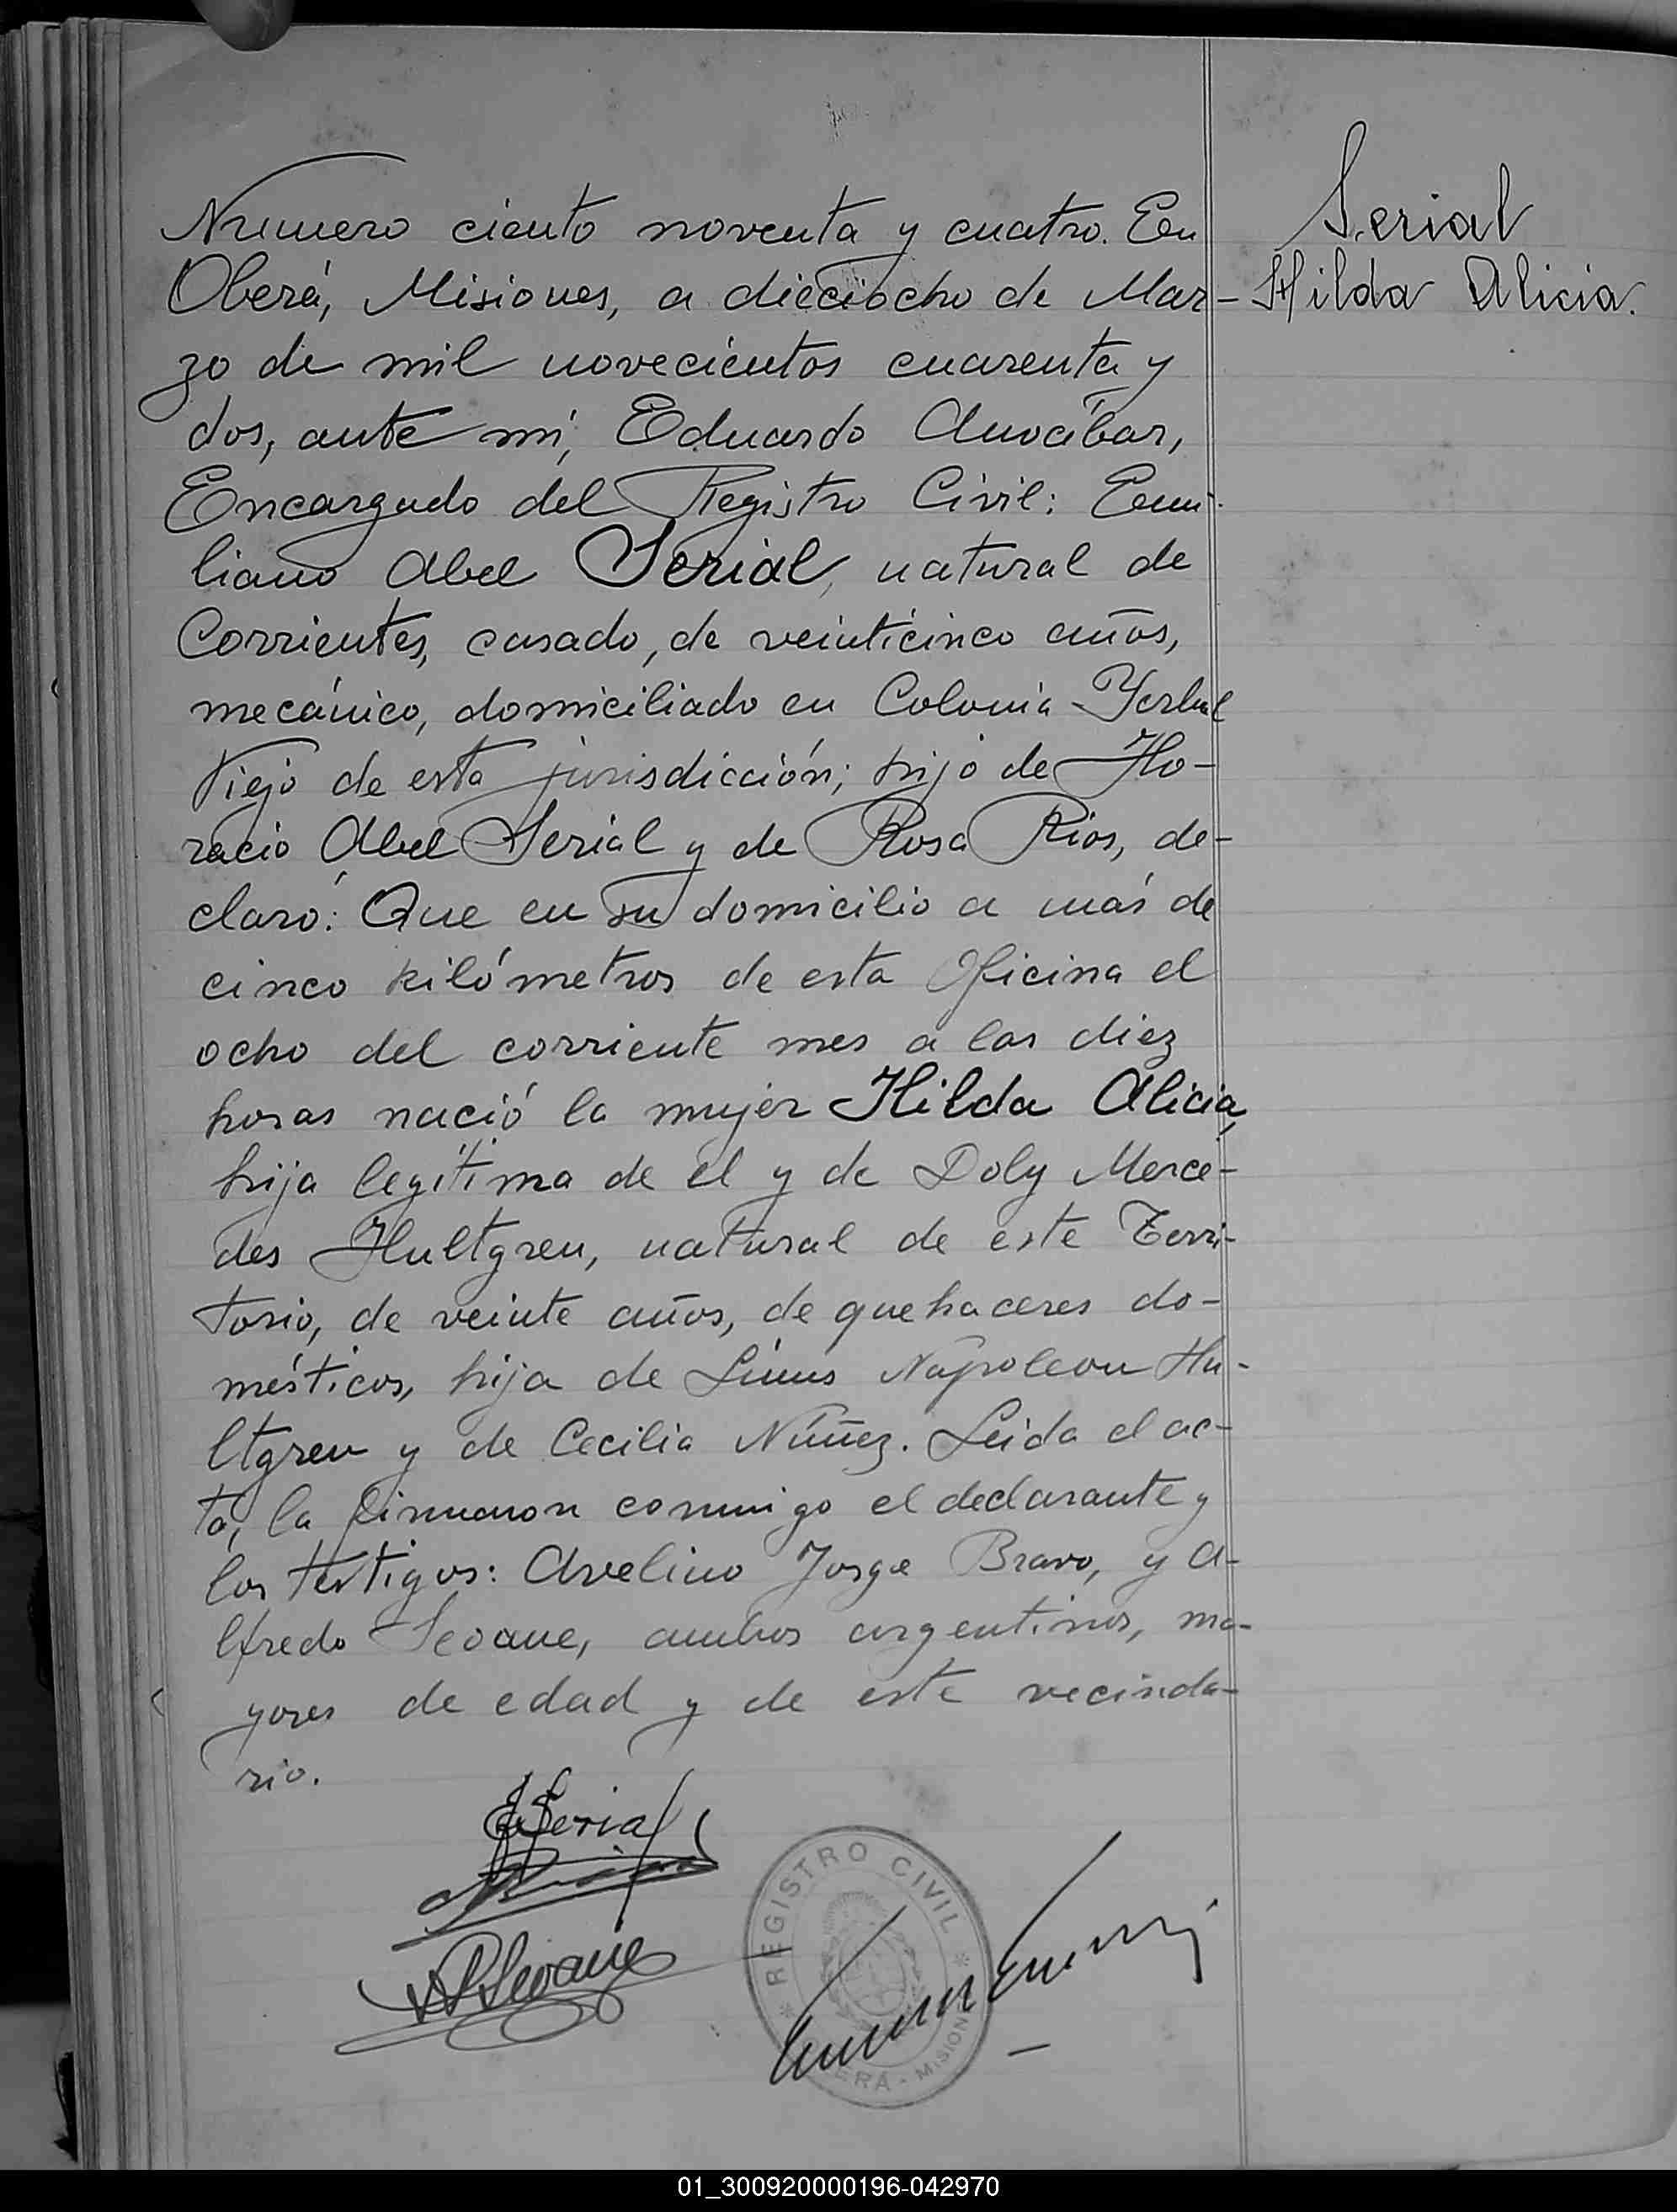 Numero ciento noventa y cuatro. En
Oberá, Misiones, a dieciocho de Mar-
zo de mil novecientos cuarenta y
dos, ante mí, Eduardo Anocíbar,
Encargado del Registro Civil: Emi-
liano Abel Serial, natural de
Corrientes, casado, de veinticinco años,
mecánico, domiciliado en Colonia Yerbal
Viejo de esta jurisdicción; hijo de Ho-
racio Abel Serial y de Rosa Rios, de-
claró: Que en su domicilio a más de
cinco kilómetros de esta Oficina el
ocho del corriente mes a las diez
horas nació la mujer Hilda Alicia,
hija legítima de el y de Doly Merce-
des Hultgren, natural de este Terri-
torio, de veinte años, de quehaceres do-
mésticos, hija de Linus Napoleon Hu-
ltgren y de Cecilia Núñez. Leida el ac-
ta, la firmaron conmigo el declarante y
los testigos: Avelino Jorge Bravo, y A-
lfredo Seoane, ambos argentinos, ma-
yores de edad y de este vecinda-
rio.
Serial
Hilda Alicia.
EASerial
ASeoane
REGISTRO CIVIL
MISIONES
01_300920000196-042970